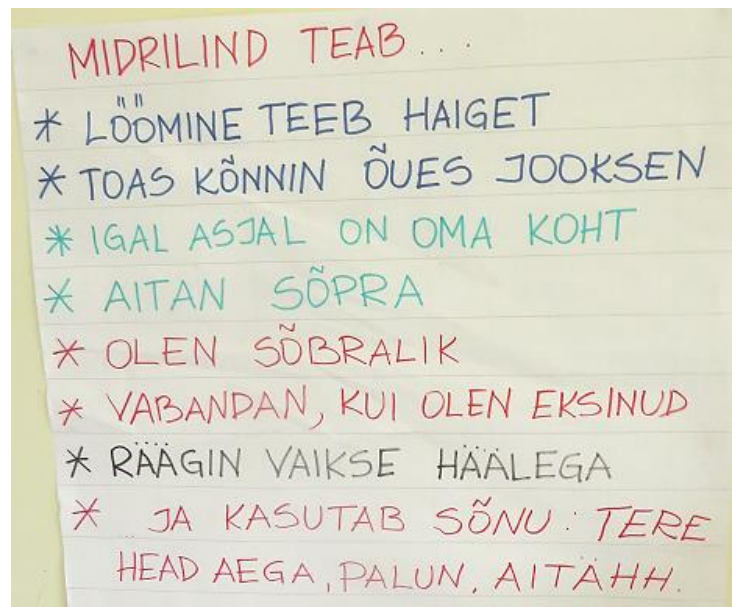 MIDRILIND TEAB...
* LÖÖMINE TEEB HAIGET
* TOAS KÕNNIN ÕUES JOOKSEN
* IGAL ASJAL ON OMA KOHT
* AITAN SÕPRA
* OLEN SÕBRALIK
* VABANDAN, KUI OLEN EKSINUD
* RÄÄGIN VAIKSE HÄÄLEGA
* JA KASUTAB SÕNU: TERE
HEAD AEGA, PALUN, AITÄHH.